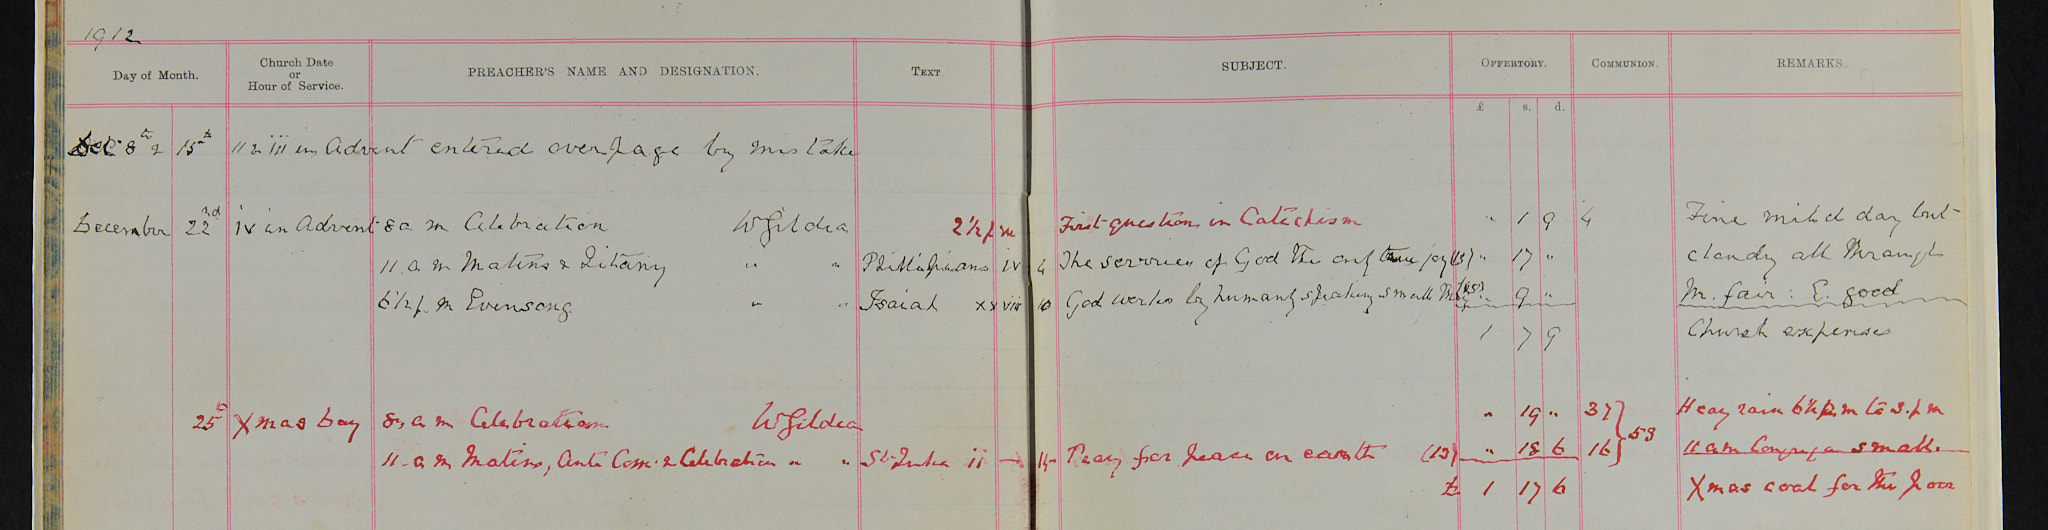 1912
Day of Month. Church Date or Hour of Service. PREACHER'S NAME AND DESIGNATION. TEXT SUBJECT. OFFERTORY. COMMUNION. REMARKS.
£ s. d.
Dec 8th & 15th ii & iii in Advent entered overpage by mistake
December 22nd iv in Advent 8 a m Celebration W Gildea 2½ p m First question in Catechism " 1 9 4 Fine mild day but
11 a m Matins & Litany " " Phillipians iv 4 The service of God the only true joy (13) " 17 " cloudy all through
6½ p. m Evensong " " Isaiah xxviii 10 God works by humanly speaking small " 9 " M. fair : E. good
1 7 9 Church expenses
25th Xmas Day 8 a m Celebration W Gildea " 19 " 37 Heavy rain 6½ a.m to 3. p m
11 a m Matins, Ante Com: & Celebration " " St Luke ii 14 Peace for peace on earth (13) " 18 6 16 } 53 11 am Congregan small.
£ 1 17 6 Xmas coal for the poor